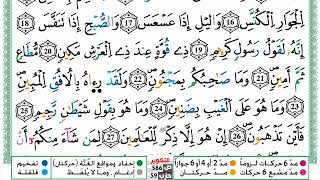 ٱلۡجَوَارِ ٱلۡكُنَّسِ ١٦ وَٱلَّيۡلِ إِذَا عَسۡعَسَ ١٧ وَٱلصُّبۡحِ إِذَا تَنَفَّسَ ١٨
إِنَّهُۥ لَقَوۡلُ رَسُولٖ كَرِيمٖ ١٩ ذِي قُوَّةٍ عِندَ ذِي ٱلۡعَرۡشِ مَكِينٖ ٢٠ مُّطَاعٖ
ثَمَّ أَمِينٖ ٢١ وَمَا صَاحِبُكُم بِمَجۡنُونٖ ٢٢ وَلَقَدۡ رَءَاهُ بِٱلۡأُفُقِ ٱلۡمُبِينِ ٢٣
وَمَا هُوَ عَلَى ٱلۡغَيۡبِ بِضَنِينٖ ٢٤ وَمَا هُوَ بِقَوۡلِ شَيۡطَٰنٖ رَّجِيمٖ ٢٥
فَأَيۡنَ تَذۡهَبُونَ ٢٦ إِنۡ هُوَ إِلَّا ذِكۡرٞ لِّلۡعَٰلَمِينَ ٢٧ لِمَن شَآءَ مِنكُمۡ أَن
مدّ ٦ حركات لزوماً مدّ ٢ أو ٤ أو ٦ جوازاً التكوير 586 إخفاء ومواقع الغُنَّة (حركتان) تفخيم
مدّ مشبع ٦ حركات مدّ حركتان إدغام ، وما لا يُلفَظ قلقلة